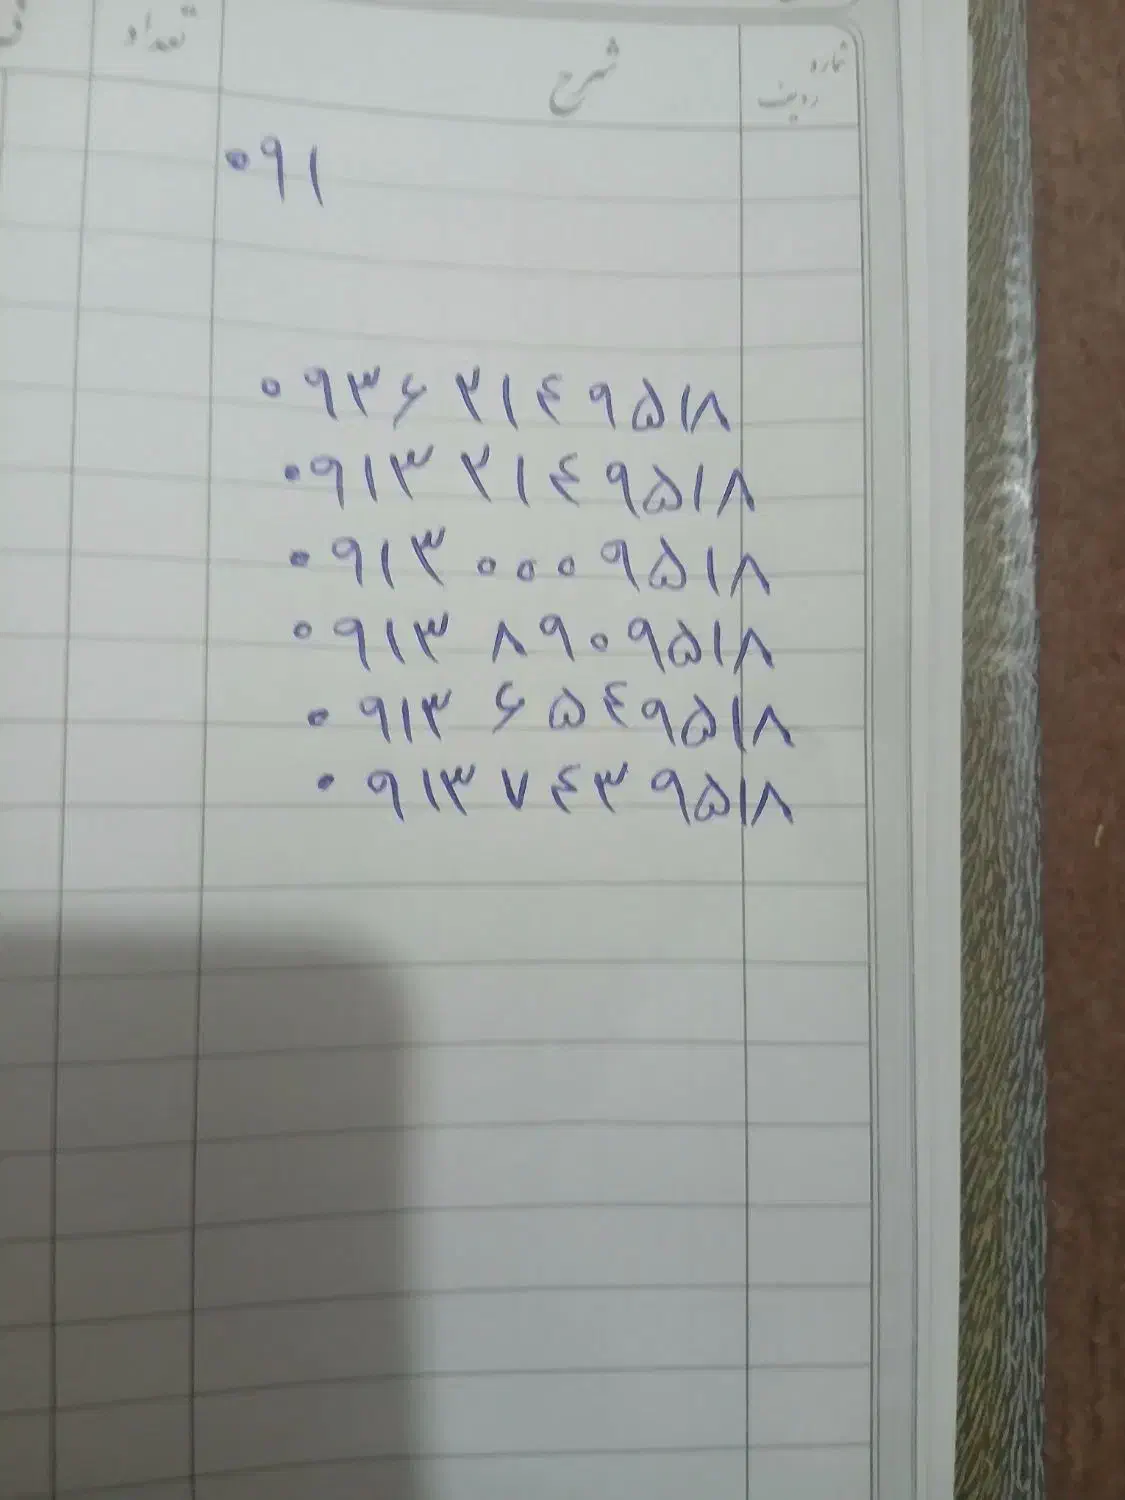 شماره ردیف شرح تعداد
۰۹۱
۰۹۳۶ ۲۱۴ ۹۵۱۸
۰۹۱۳ ۲۱۴ ۹۵۱۸
۰۹۱۳ ۰۰۰ ۹۵۱۸
۰۹۱۳ ۸۹۰ ۹۵۱۸
۰۹۱۳ ۶۵۴ ۹۵۱۸
۰۹۱۳ ۷۴۳ ۹۵۱۸